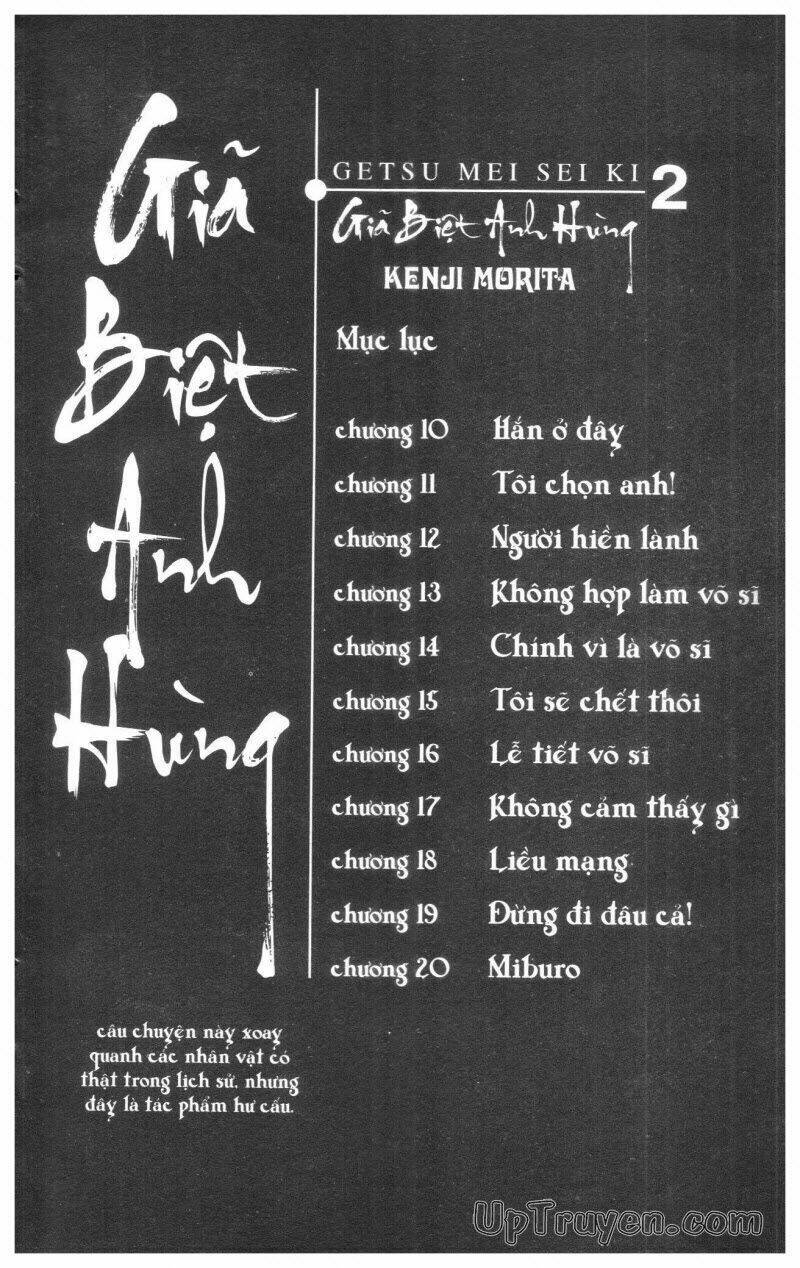 Giã
Biệt
Anh
Hùng
GETSU MEI SEI KI 2
Giã Biệt Anh Hùng
KENJI MORITA
Mục lục
chương 10 Hắn ở đây
chương 11 Tôi chọn anh!
chương 12 Người hiền lành
chương 13 Không hợp làm võ sĩ
chương 14 Chính vì là võ sĩ
chương 15 Tôi sẽ chết thôi
chương 16 Lễ tiết võ sĩ
chương 17 Không cảm thấy gì
chương 18 Liều mạng
chương 19 Đừng đi đâu cả!
chương 20 Miburo
câu chuyện này xoay
quanh các nhân vật có
thật trong lịch sử, nhưng
đây là tác phẩm hư cấu.
UpTruyen.com